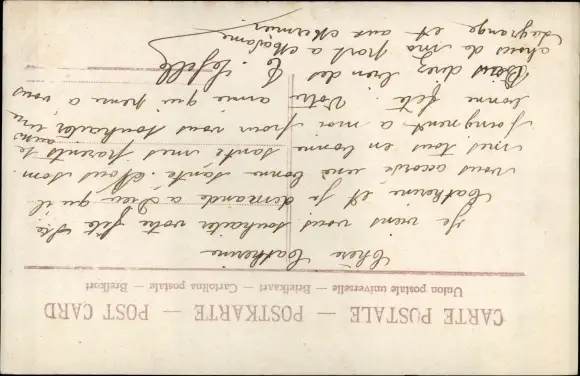 CARTE POSTALE — POSTKARTE — POST CARD
Union postale universelle — Briefkaart — Cartolina postale — Brefkort
Chère Catherine
Je viens vous souhaiter votre fête Ste
Catherine et je demande a Dieu qu'il
vous accorde une bonne santé. Nous som
mes tous en bonne santé mes parents se
joignent a moi pour vous souhaiter une
bonne fête. Votre amie qui pense a vous
Bais direz bien des
choses de ma part a Madame
Legrange et aux